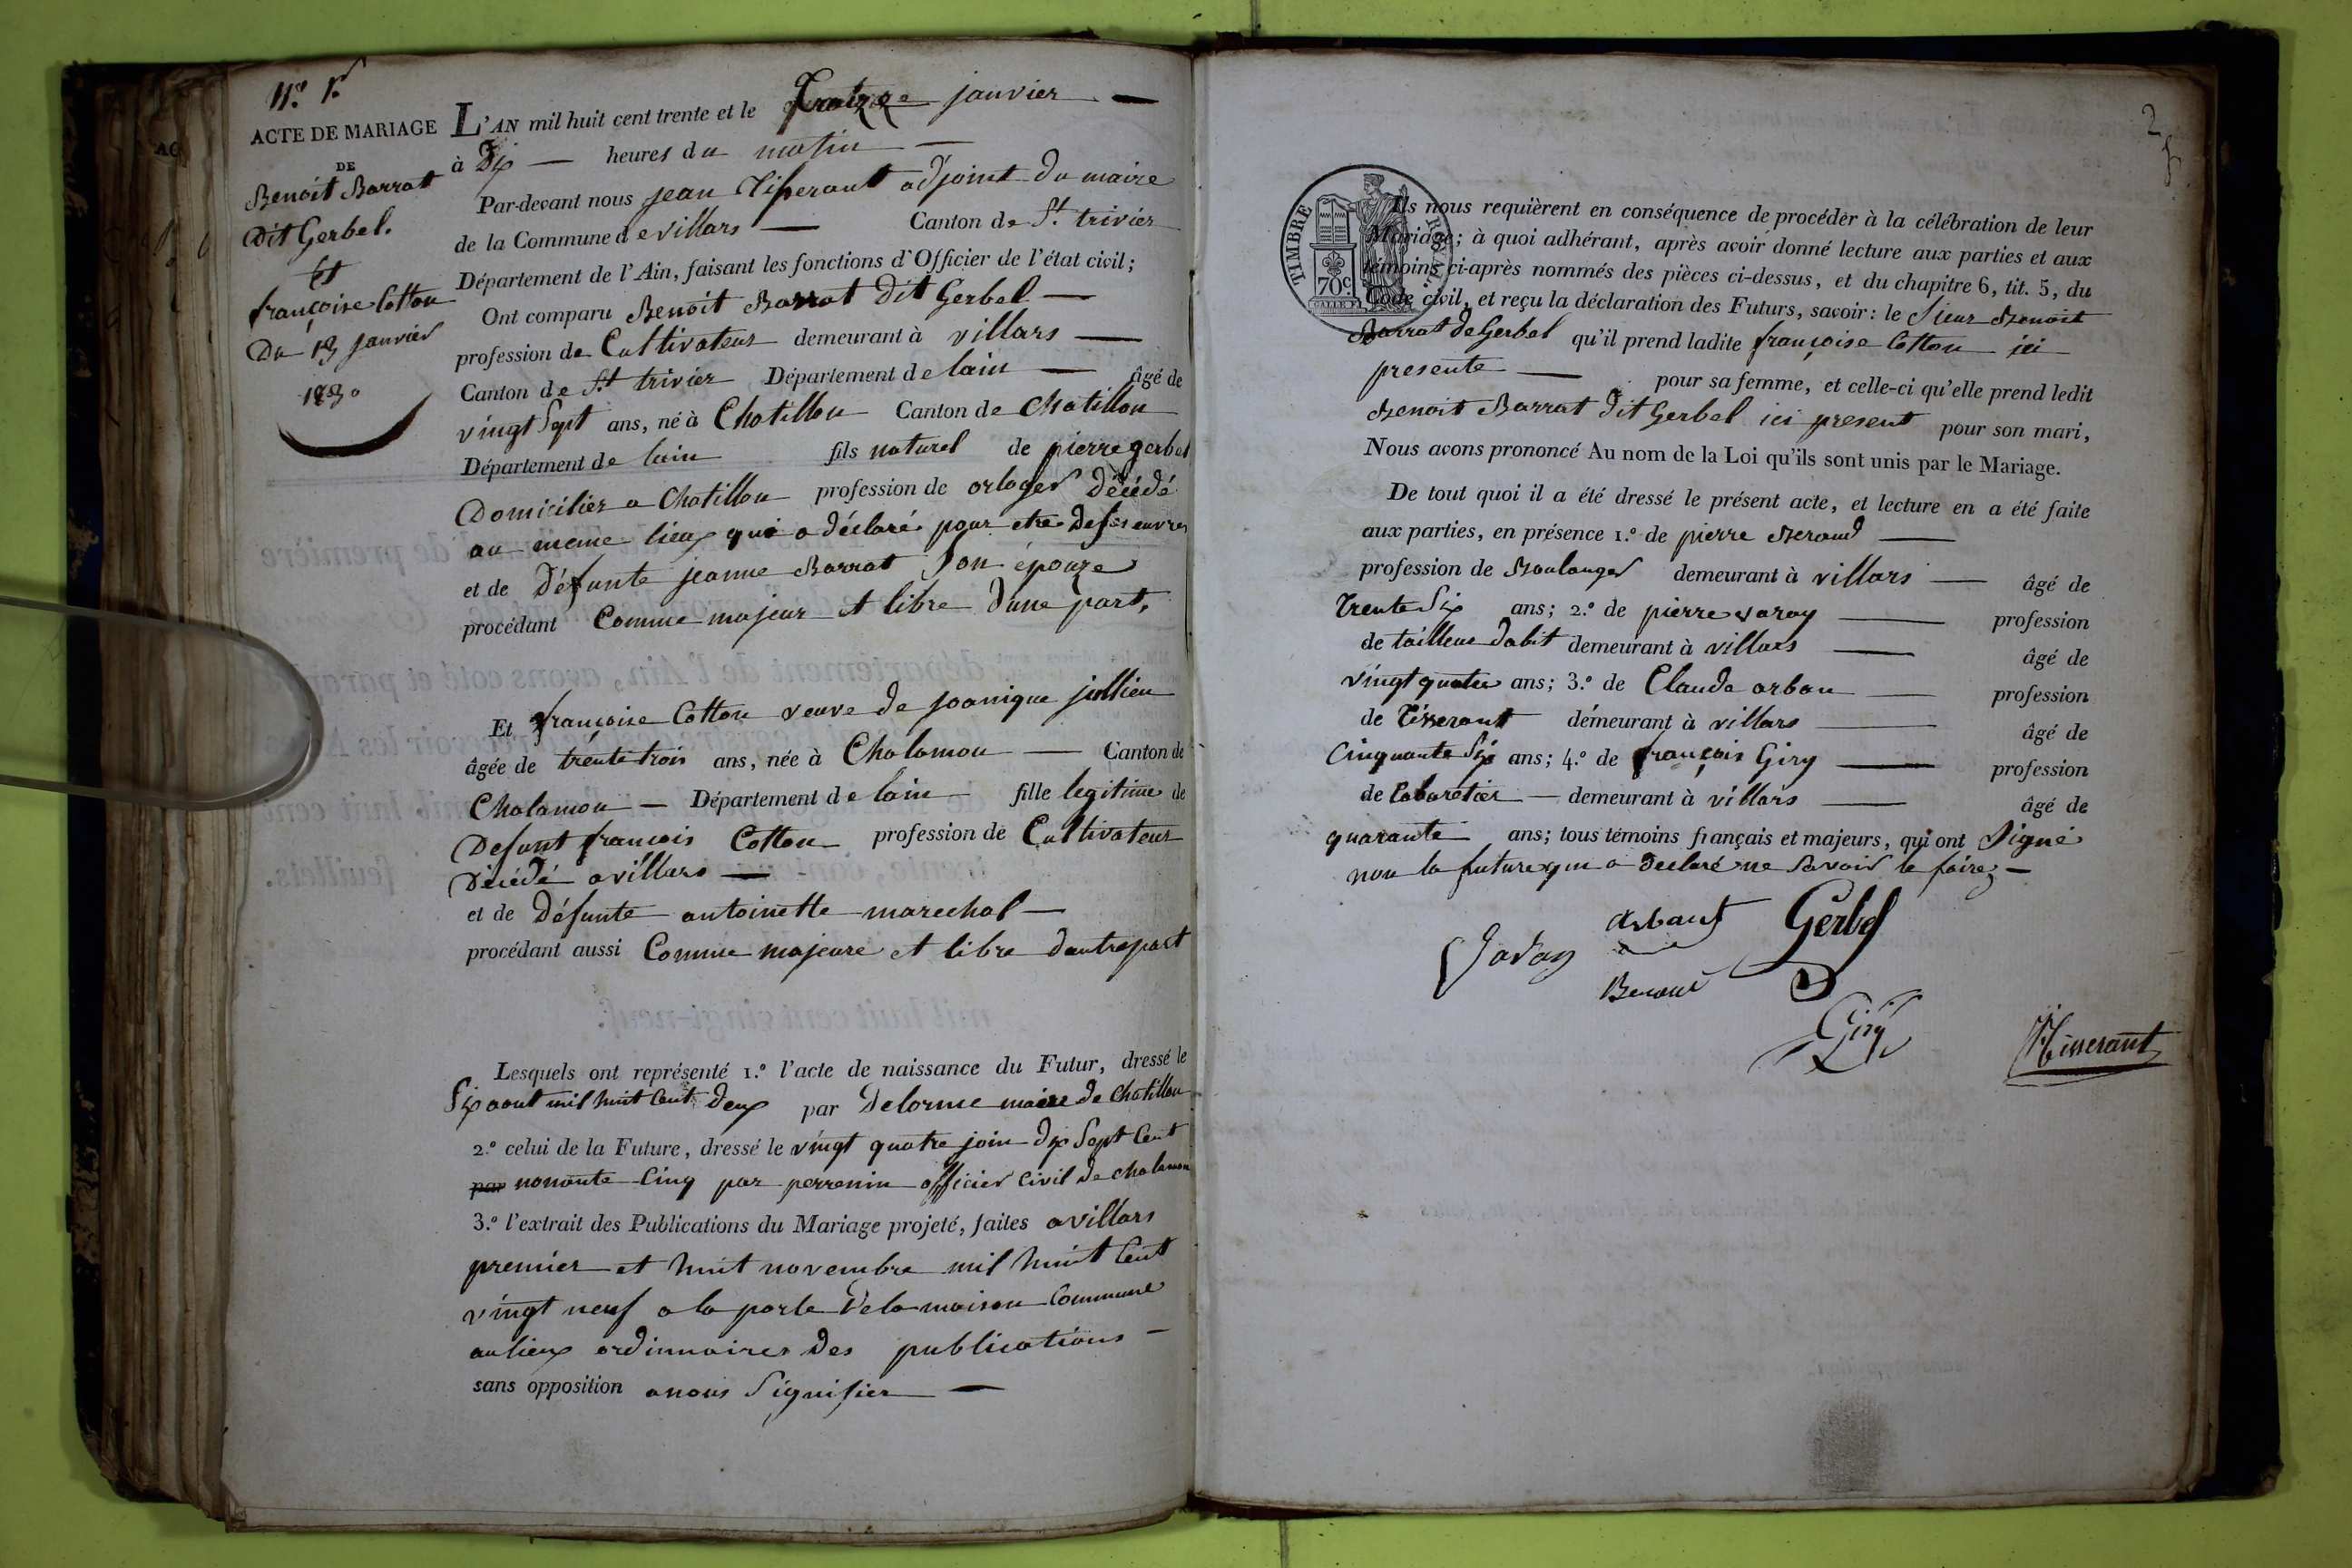 N.º 1.er
ACTE DE MARIAGE
DE
Benoit Barrat
dit Gerbel.
Et
françoise Cotton
Du 13 janvier
1830
L'AN mil huit cent trente et le treizze janvier —
à Dix — heures du matin —
Par-devant nous jean Tisserant adjoint du maire
de la Commune de villars — Canton de St. trivier
Département de l'Ain, faisant les fonctions d'Officier de l'état civil;
Ont comparu Benoit Barrat Dit Gerbel —
profession de Cultivateur demeurant à villars —
Canton de St. trivier Département de lain — âgé de
vingt Sept ans, né à Chatillon Canton de Chatillon
Département de lain fils naturel de pierre gerbel
Domicilier a Chatillon profession de orloger décédé
au meme lieux qui a déclaré pour etre de ses euvres
et de Défunte jeanne Barrat Son épouze
procédant Comme majeur et libre dune part,
Et françoise Cotton veuve de joanique jullien
âgée de trente trois ans, née à Chalamon — Canton de
Chalamon — Département de lain fille legitime de
Defunt francois Cotton profession de Cultivateur
Décédé a villars —
et de Défunte antoinette marechal —
procédant aussi Comme majeure et libre dautrepart
Lesquels ont représenté 1.º l'acte de naissance du Futur, dressé le
Six aout mil huit Cent deux par Delorme maire de Chatillon
2.º celui de la Future, dressé le vingt quatre juin dix Sept Cent
par nonante Cinq par perrenin officier Civil de chalamon
3.º l'extrait des Publications du Mariage projeté, faites a villars
premier et huit novembre mil huit Cent
vingt neuf a la porte de la maison Commune
au lieux ordinnaires des publications —
sans opposition a nous Signifier —
2
TIMBRE ROYAL
70 c.
Ils nous requièrent en conséquence de procéder à la célébration de leur
Mariage; à quoi adhérant, après avoir donné lecture aux parties et aux
témoins ci-après nommés des pièces ci-dessus, et du chapitre 6, tit. 5, du
Code civil, et reçu la déclaration des Futurs, savoir: le Sieur Benoit
Barrat de Gerbel qu'il prend ladite françoise Cotton ici
presente — pour sa femme, et celle-ci qu'elle prend ledit
Benoit Barrat Dit Gerbel ici present pour son mari,
Nous avons prononcé Au nom de la Loi qu'ils sont unis par le Mariage.
De tout quoi il a été dressé le présent acte, et lecture en a été faite
aux parties, en présence 1.º de pierre Beraud —
profession de Boulanger demeurant à villars — âgé de
Trente Six ans; 2.º de pierre — profession
de tailleur dabit demeurant à villars — âgé de
vingt quatre ans; 3.º de Claude arban — profession
de Tisserant demeurant à villars — âgé de
Cinquante Six ans; 4.º de françois Giry — profession
de Cabaretier — demeurant à villars — âgé de
quarante ans; tous témoins français et majeurs, qui ont Signé
non la future qui a declaré ne Savoir le faire —
Gerbel
Giry
Tisserant